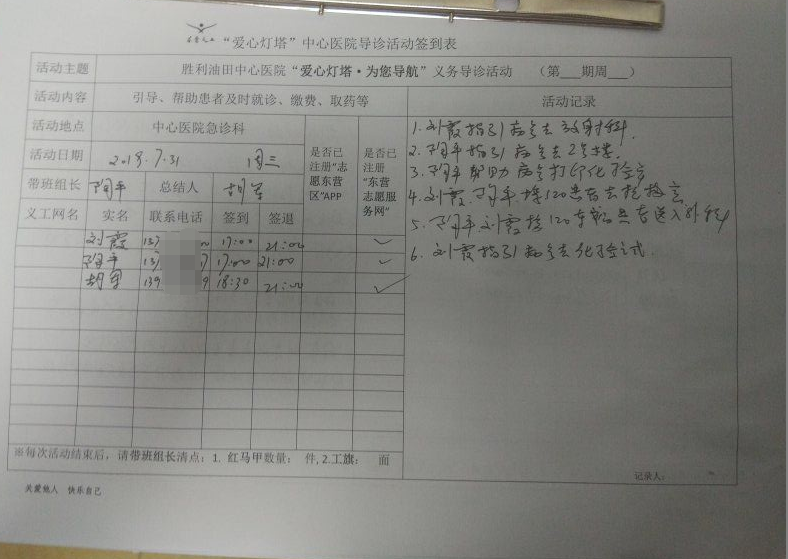 “爱心灯塔”中心医院导诊活动签到表
活动主题 胜利油田中心医院“爱心灯塔·为您导航”义务导诊活动 （第___期周___）
活动内容 引导、帮助患者及时就诊、缴费、取药等 活动记录
活动地点 中心医院急诊科
活动日期 2019.7.31 周三
带班组长 总结人 胡军
是否已注册“志愿东营区”APP
是否已注册“东营志愿服务网”
义工网名 实名 联系电话 签到 签退
刘霞 137 17:00 21:00 ✓
17:00 21:00 ✓
胡军 139 9 18:30 21:00 ✓
1. 刘霞指引病号去放射科.
2. 指引病号去2号楼.
3. 帮助病号打印化验单
4. 刘霞. 120患者去抢救室
5. 刘霞接120车 患者送入外科
6. 刘霞指引病号去化验室
※每次活动结束后，请带班组长清点：1. 红马甲数量： 件, 2.工旗： 面
记录人：
关爱他人 快乐自己